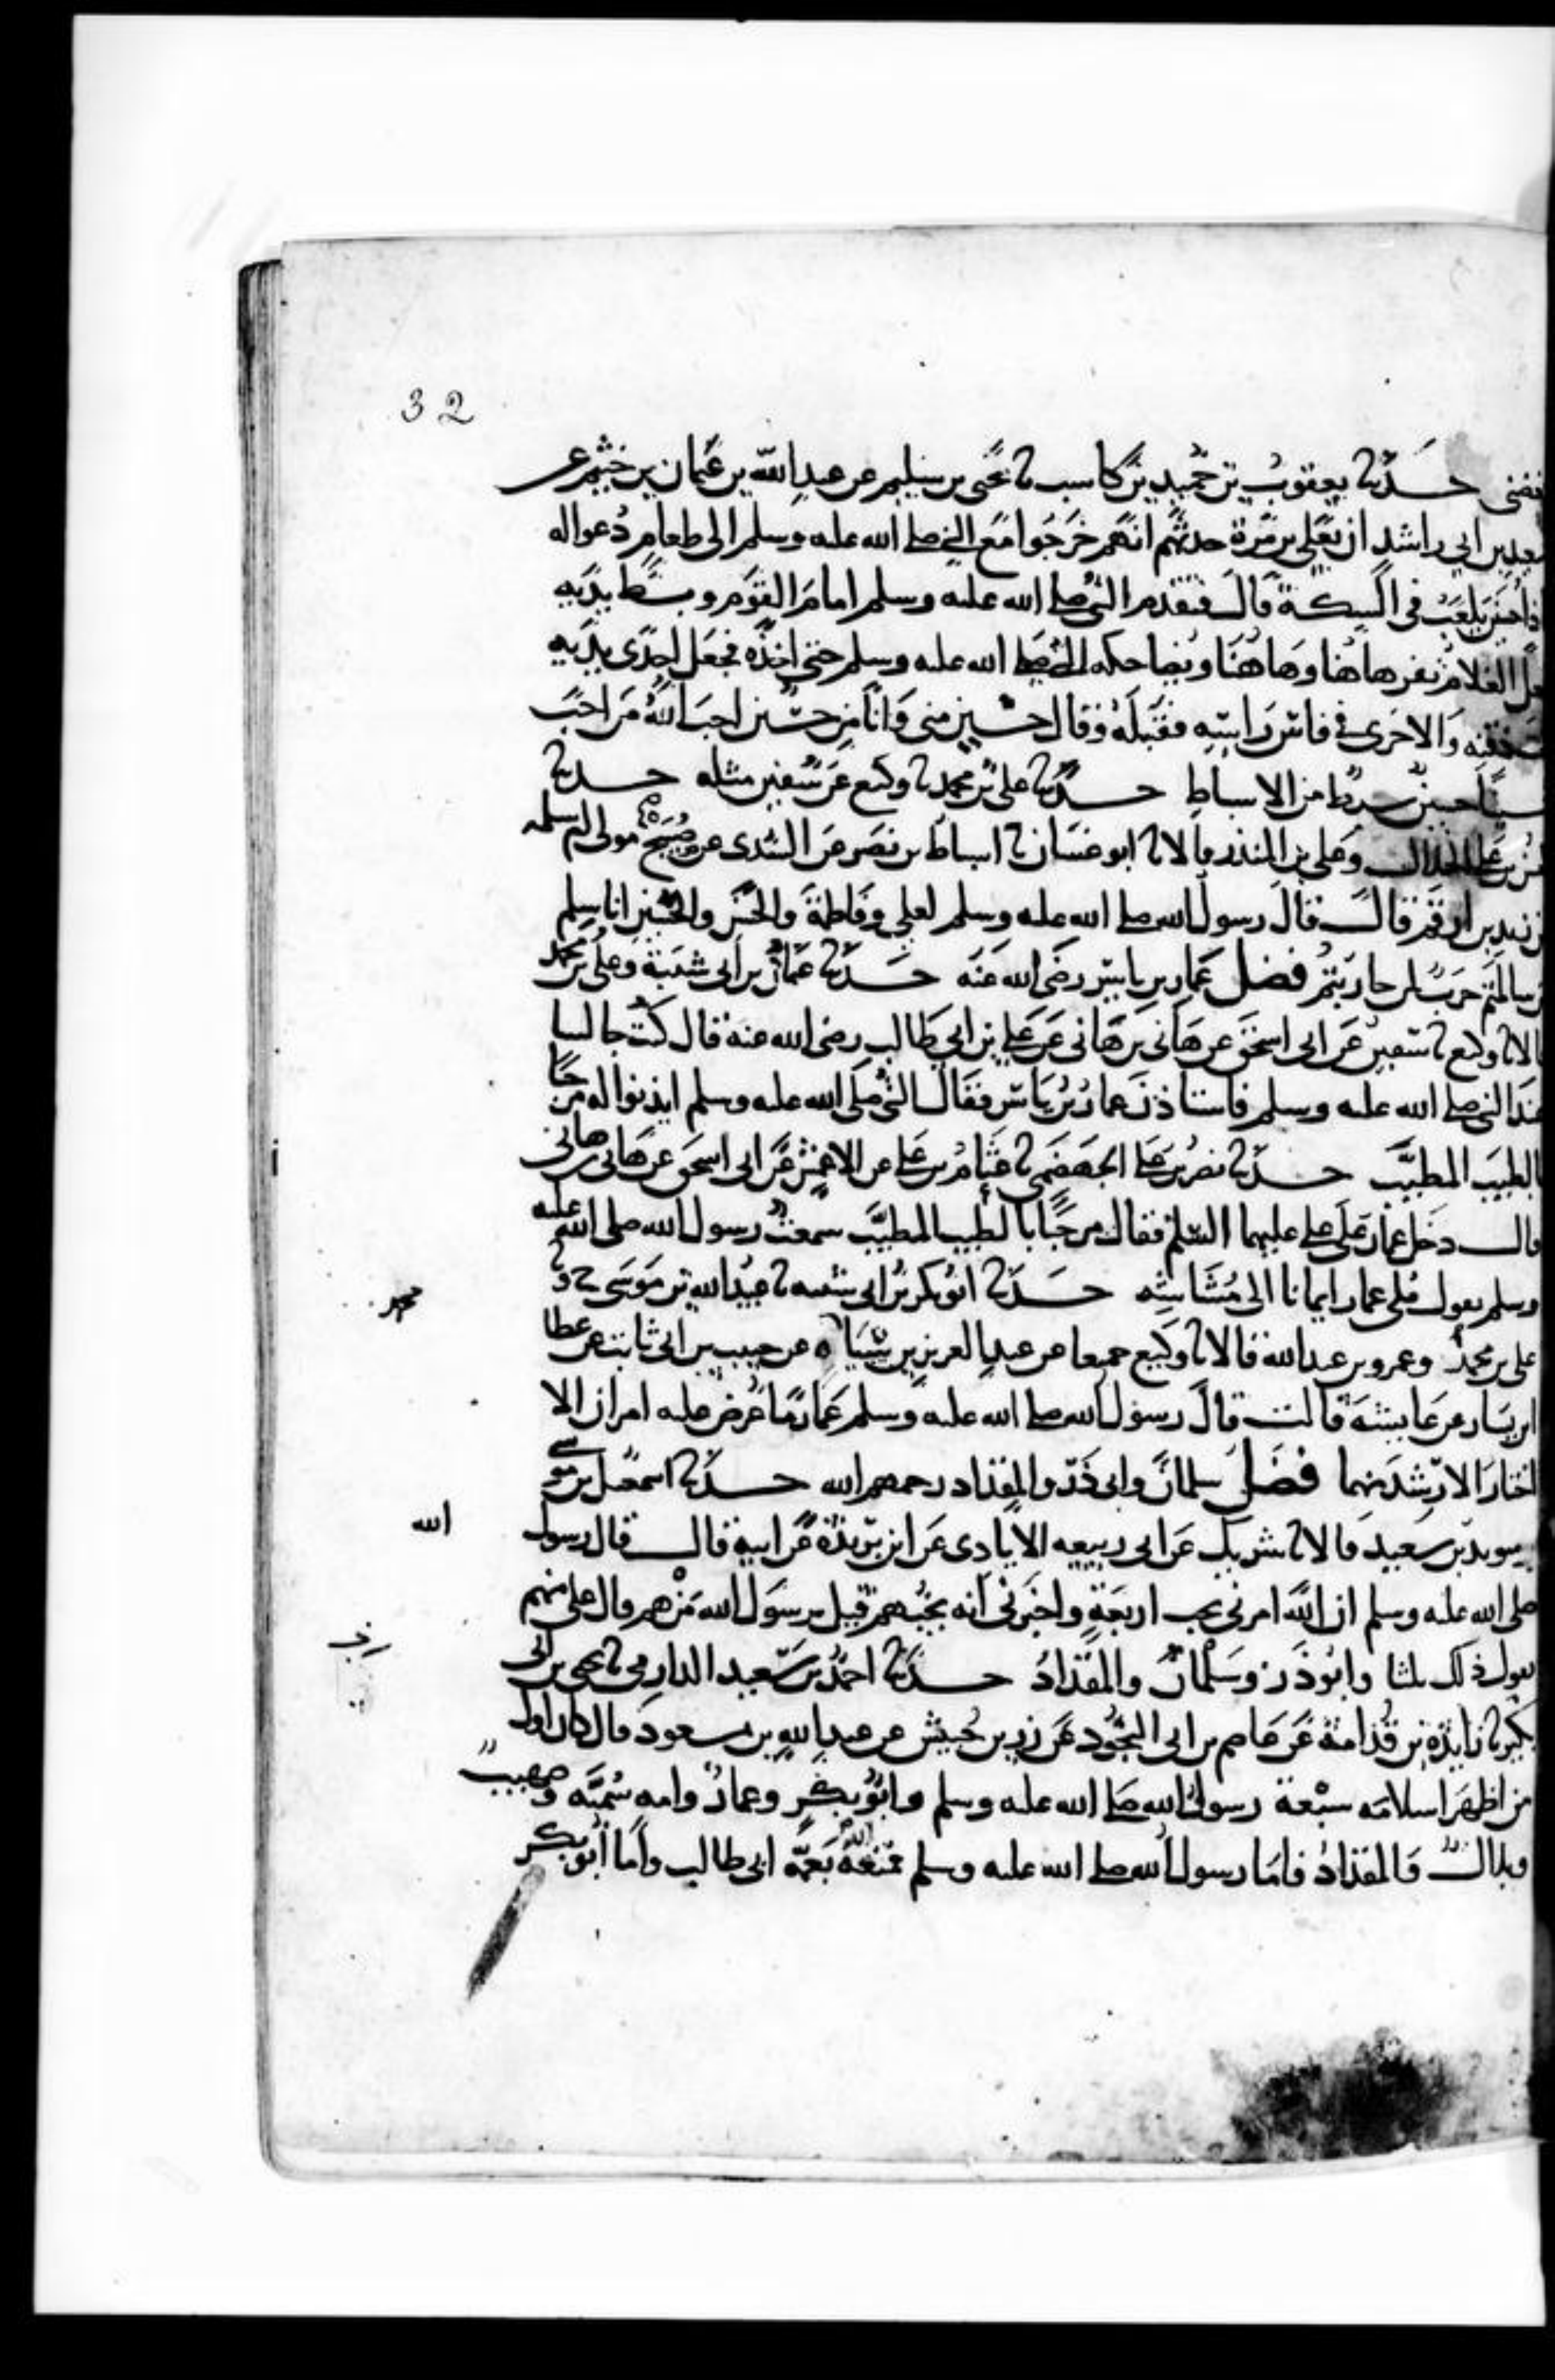 32
حدثنا يعقوب بن حميد بن كاسب نا يحيى بن سليم عن عبد الله بن عثمان بن خثيم عن
سعيد بن ابي راشد ان يعلى بن مرة حدثهم انهم خرجوا مع النبي صلى الله عليه وسلم الى طعام دعوا له
فاذا حسين يلعب في السكة قال فتقدم النبي صلى الله عليه وسلم امام القوم وبسط يديه
الغلام يفر هاهنا وهاهنا ويضاحكه النبي صلى الله عليه وسلم حتى اخذه فجعل احدى يديه
ذقنه والاخرى في فاس راسه فقبله وقال حسين مني وانا من حسين احب الله من احب
حسينا حسين سبط من الاسباط حدثنا علي بن محمد نا وكيع عن سفين مثله حدثنا
الخلال وعلي بن المنذر قالا نا ابو غسان نا اسباط بن نصر عن السدي عن صبيح مولى ام سلمه
زيد بن ارقم قال قال رسول الله صلى الله عليه وسلم لعلي وفاطمة والحسن والحسين انا سلم
سالمتم حرب لمن حاربتم فضل عمار بن ياسر رضي الله عنه حدثنا عثمان بن ابي شيبة وعلي بن محمد
قالا نا وكيع نا سفين عن ابي اسحق عن هاني بن هاني عن علي بن ابي طالب رضي الله عنه قال كنت جالسا
عند النبي صلى الله عليه وسلم فاستاذن عمار بن ياسر فقال النبي صلى الله عليه وسلم ايذنوا له مرحبا
بالطيب المطيب حدثنا نصر بن علي الجهضمي نا عثام بن علي عن الاعمش عن ابي اسحق عن هاني بن هاني
قال دخل عمار على علي عليهما السلم فقال مرحبا بالطيب المطيب سمعت رسول الله صلى الله عليه
وسلم يقول ملي عمار ايمانا الى مشاشه حدثنا ابو بكر بن ابي شيبه نا عبيد الله بن موسى ح ونا
علي بن محمد وعمرو بن عبد الله قالا نا وكيع جميعا عن عبد العزيز بن سياه عن حبيب بن ابي ثابت عن عطا
ابن يسار عن عايشة قالت قال رسول الله صلى الله عليه وسلم عمار ما عرض عليه امران الا
اختار الارشد منهما فضل سلمان وابي ذر والمقداد رحمهم الله حدثنا اسمعيل بن موسى
وسويد بن سعيد قالا نا شريك عن ابي ربيعه الايادي عن ابن بريدة عن ابيه قال قال رسول
الله
صلى الله عليه وسلم ان الله امرني بحب اربعة واخبرني انه يحبهم قيل يرسول الله من هم قال علي منهم
يقول ذلك ثلثا وابو ذر وسلمان والمقداد حدثنا احمد بن سعيد الدارمي نا يحيى بن ابي
بكير نا زايدة بن قدامة عن عاصم بن ابي النجود عن زر بن حبيش عن عبد الله بن مسعود قال كان اول
من اظهر اسلامه سبعة رسول الله صلى الله عليه وسلم وابو بكر وعمار وامه سمية وصهيب
وبلال والمقداد فاما رسول الله صلى الله عليه وسلم فمنعه الله بعمه ابي طالب واما ابو بكر